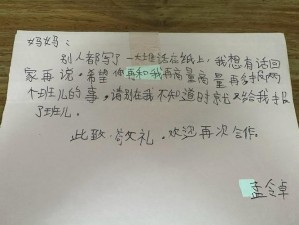 妈妈：
别人都写了一大堆话在纸上，我想有话回
家再说。希望你再和我再商量商量再多报两
个班儿的事。请别在我不知道时就又给我报
了班儿。
此致 敬礼。欢迎再次合作。
孟令卓